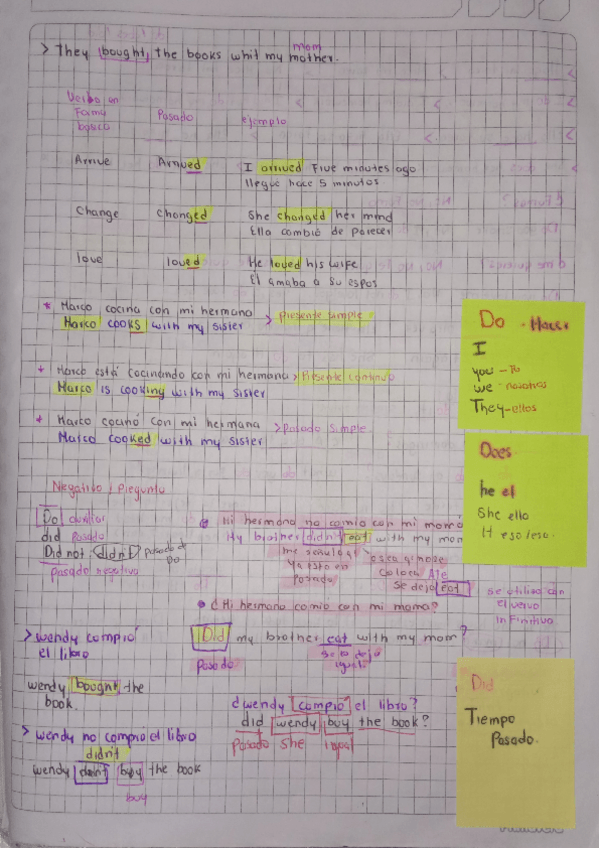 > They bought the books whit my mother.
mom
Verbo en Forma basica Pasado ejemplo
Arrive Arrived I arrived Five minutes ago
llegue hace 5 minutos
Change Changed She changed her mind
Ella cambió de parecer
love loved He loved his wife
El amaba a su espos
* Marco cocina con mi hermana
Marco cooks with my sister > presente simple
+ Marco está cocinando con mi hermana > Presente continuo
Marco is cooking with my sister
+ Marco cocinó con mi hermana > pasado simple
Marco cooked with my sister
Do - Hacer
I
you - Tu
we - nosotros
They - ellos
Does
he el
She ella
It eso/ese
Negativo y Pregunta
Do auxiliar
did Pasado
Did not: didn't pasado de Do
Pasado negativo
Mi hermano no comio con mi mamá
My brother didn't eat with my mom
Ya esta en pasado
coloca Ate
Se dejo eat
se utiliza con
el vervo
infinitivo
• ¿Mi hermano comio con mi mama?
Did my brother eat with my mom?
Pasado se deja igual
> wendy compió
el libro
wendy bought the
book.
> wendy no compro el libro
didn't
wendy didn't buy the book
buy
¿wendy compió el libro?
did wendy buy the book?
Pasado She igual
Did
Tiempo
Pasado.